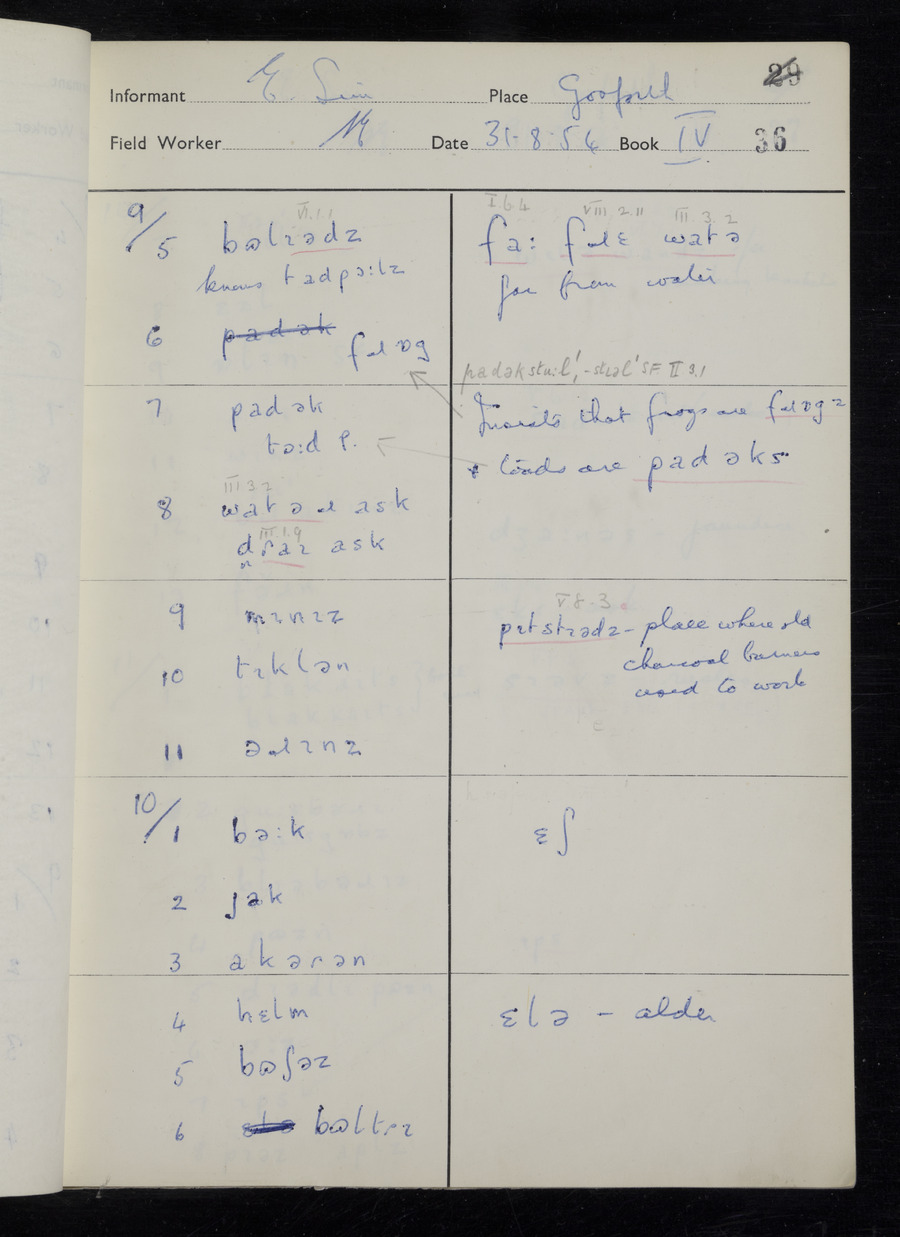 29
Informant E. Sim Place Gosforth
Field Worker Date 31-8-54 Book IV 36
9/
VI.1.1
5 bəlɪədz
knows tadpɔ:lz
6 padək fɹɒg
7 padək
ta:d P.
III 3 2
8 watəɹ ask
III.1.9
dɾaɪ ask
9 mɪnɪz
10 tɪklən
11 əɹɪnz
10/
1 bə:k
2 jak
3 akəɾən
4 hɛlm
5 bəʃəz
6 bəltɾɪ
I.6.4 VIII.2.11 III.3.2
fa: fɹɛ watə
far from water
padəkstu:l', -stɪəl' SF II 3.1
Insists that frogs are fɹɒgz
+ toads are padəks
V 8-3
pɪtstɪədz - place where old
charcoal burners
used to work
ɛʃ
ɛlə - alder